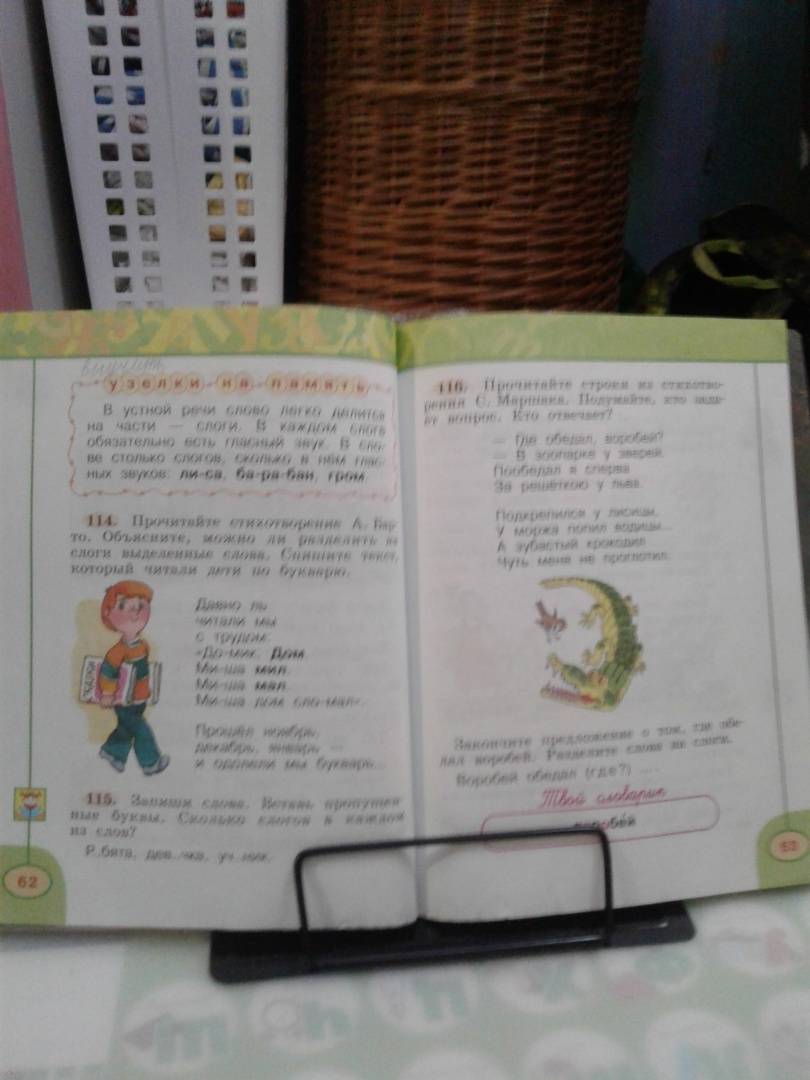 выучить
узелки на память
В устной речи слово легко делится
на части — слоги. В каждом слоге
обязательно есть гласный звук. В сло-
ве столько слогов, сколько в нём глас-
ных звуков: ли-са, ба-ра-бан, гром.
114. Прочитайте стихотворение А. Бар-
то. Объясните, можно ли разделить на
слоги выделенные слова. Спишите текст,
который читали дети по букварю.
Давно ль
читали мы
с трудом:
«До-мик. Дом.
Ми-ша мил.
Ми-ша мал.
Ми-ша дом сло-мал».
Прошёл ноябрь,
декабрь, январь —
и одолели мы букварь...
115. Запиши слова. Вставь пропущен-
ные буквы. Сколько слогов в каждом
из слов?
Р..бята, дев..чка, уч..ник.
62
116. Прочитайте строки из стихотво-
рения С. Маршака. Подумайте, кто зада-
ёт вопрос. Кто отвечает?
— Где обедал, воробей?
— В зоопарке у зверей.
Пообедал я сперва
За решёткою у льва.
Подкрепился у лисицы.
У моржа попил водицы...
А зубастый крокодил
Чуть меня не проглотил.
Закончите предложение о том, где обе-
дал воробей. Разделите слова на слоги.
Воробей обедал (где?) ....
Твой словарик
воробей
63